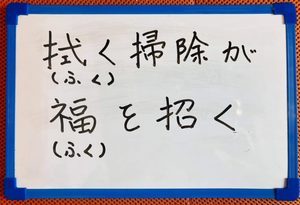 拭く掃除が
(ふく)
福を招く
(ふく)